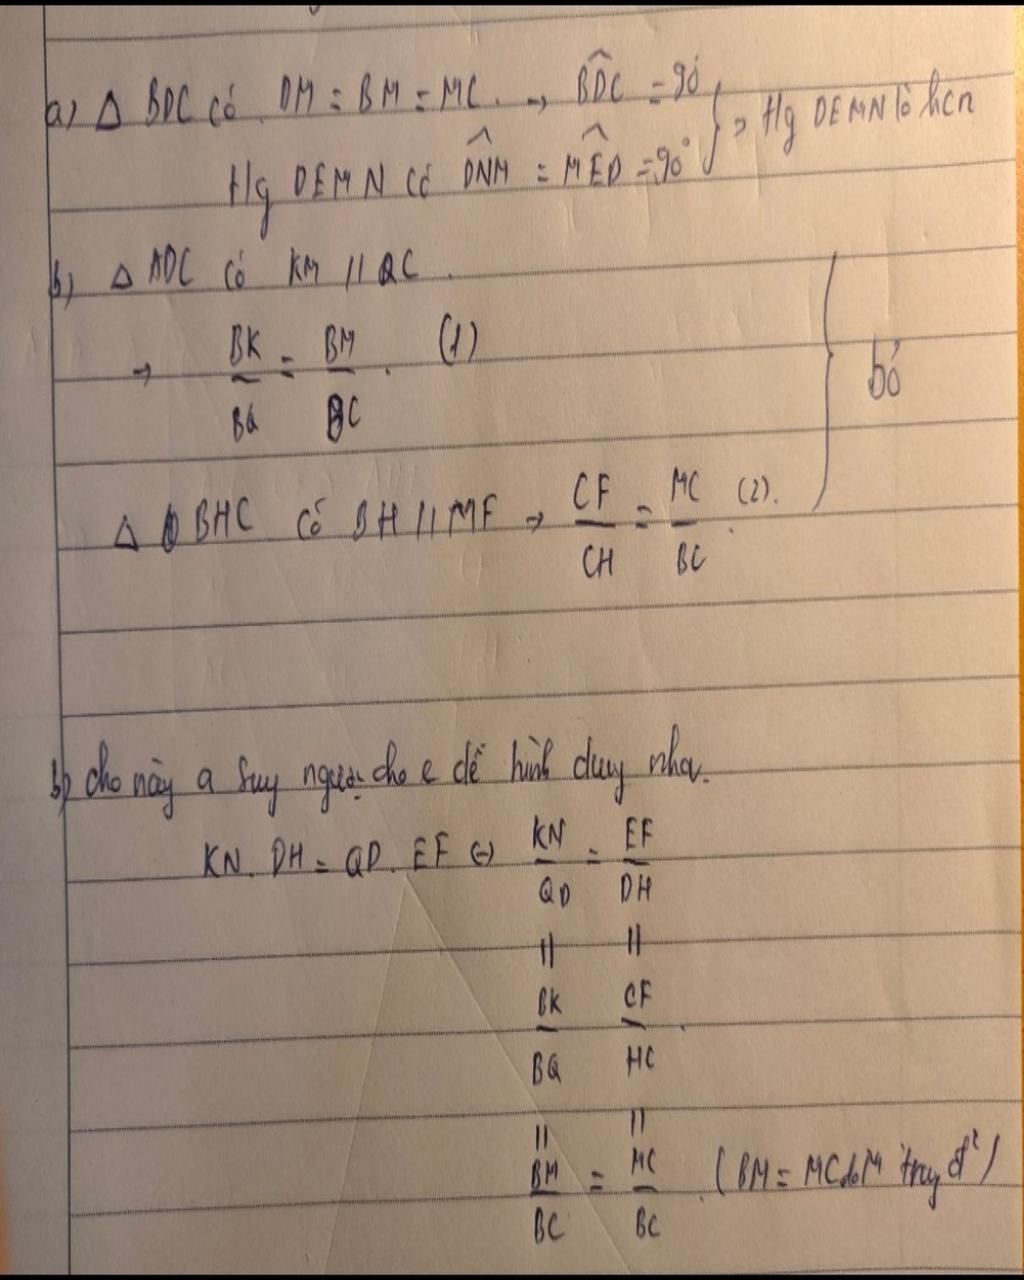 a) △ BDC có DM = BM = MC. → BDC = 90°
Hg DEMN có DNM = MED = 90° } → Hg DEMN là hcn
b) △ ADC có KM // QC.
→ BK/BQ = BM/BC. (1)
△ BHC có BH // MF → CF/CH = MC/BC. (2).
bỏ
b) cho này a suy ngược cho e dễ hình duy nha.
KN. DH = QD. EF ↔ KN/QD = EF/DH
॥ ॥
BK/BQ CF/HC.
॥ ॥
BM/BC = MC/BC. (BM = MC do M trug đ²)